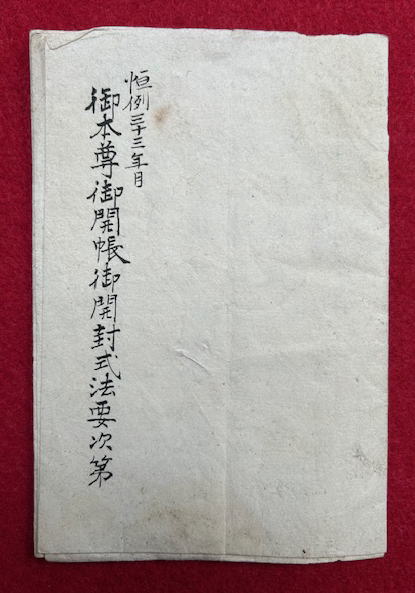 恒例三十三年目
御本尊御開帳御開封式法要次第